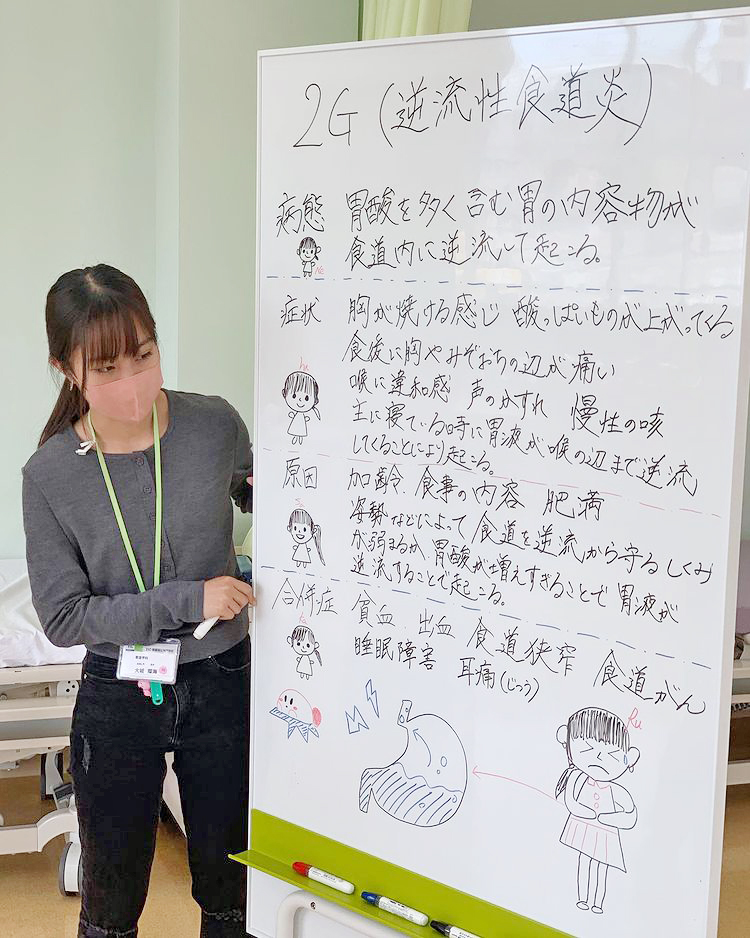 2G (逆流性食道炎)
病態 胃酸を多く含む胃の内容物が
食道内に逆流して起こる。
症状 胸が焼ける感じ 酸っぱいものが上がってくる
食後に胸やみぞおちの辺が痛い
喉に違和感 声のかすれ 慢性の咳
主に寝ている時に胃液が喉の辺まで逆流
してくることにより起こる。
原因 加齢、食事の内容 肥満
姿勢などによって食道を逆流から守るしくみ
が弱まるか、胃酸が増えすぎることで胃液が
逆流することで起こる。
合併症 貧血 出血 食道狭窄 食道がん
睡眠障害 耳痛(じつう)
Ru